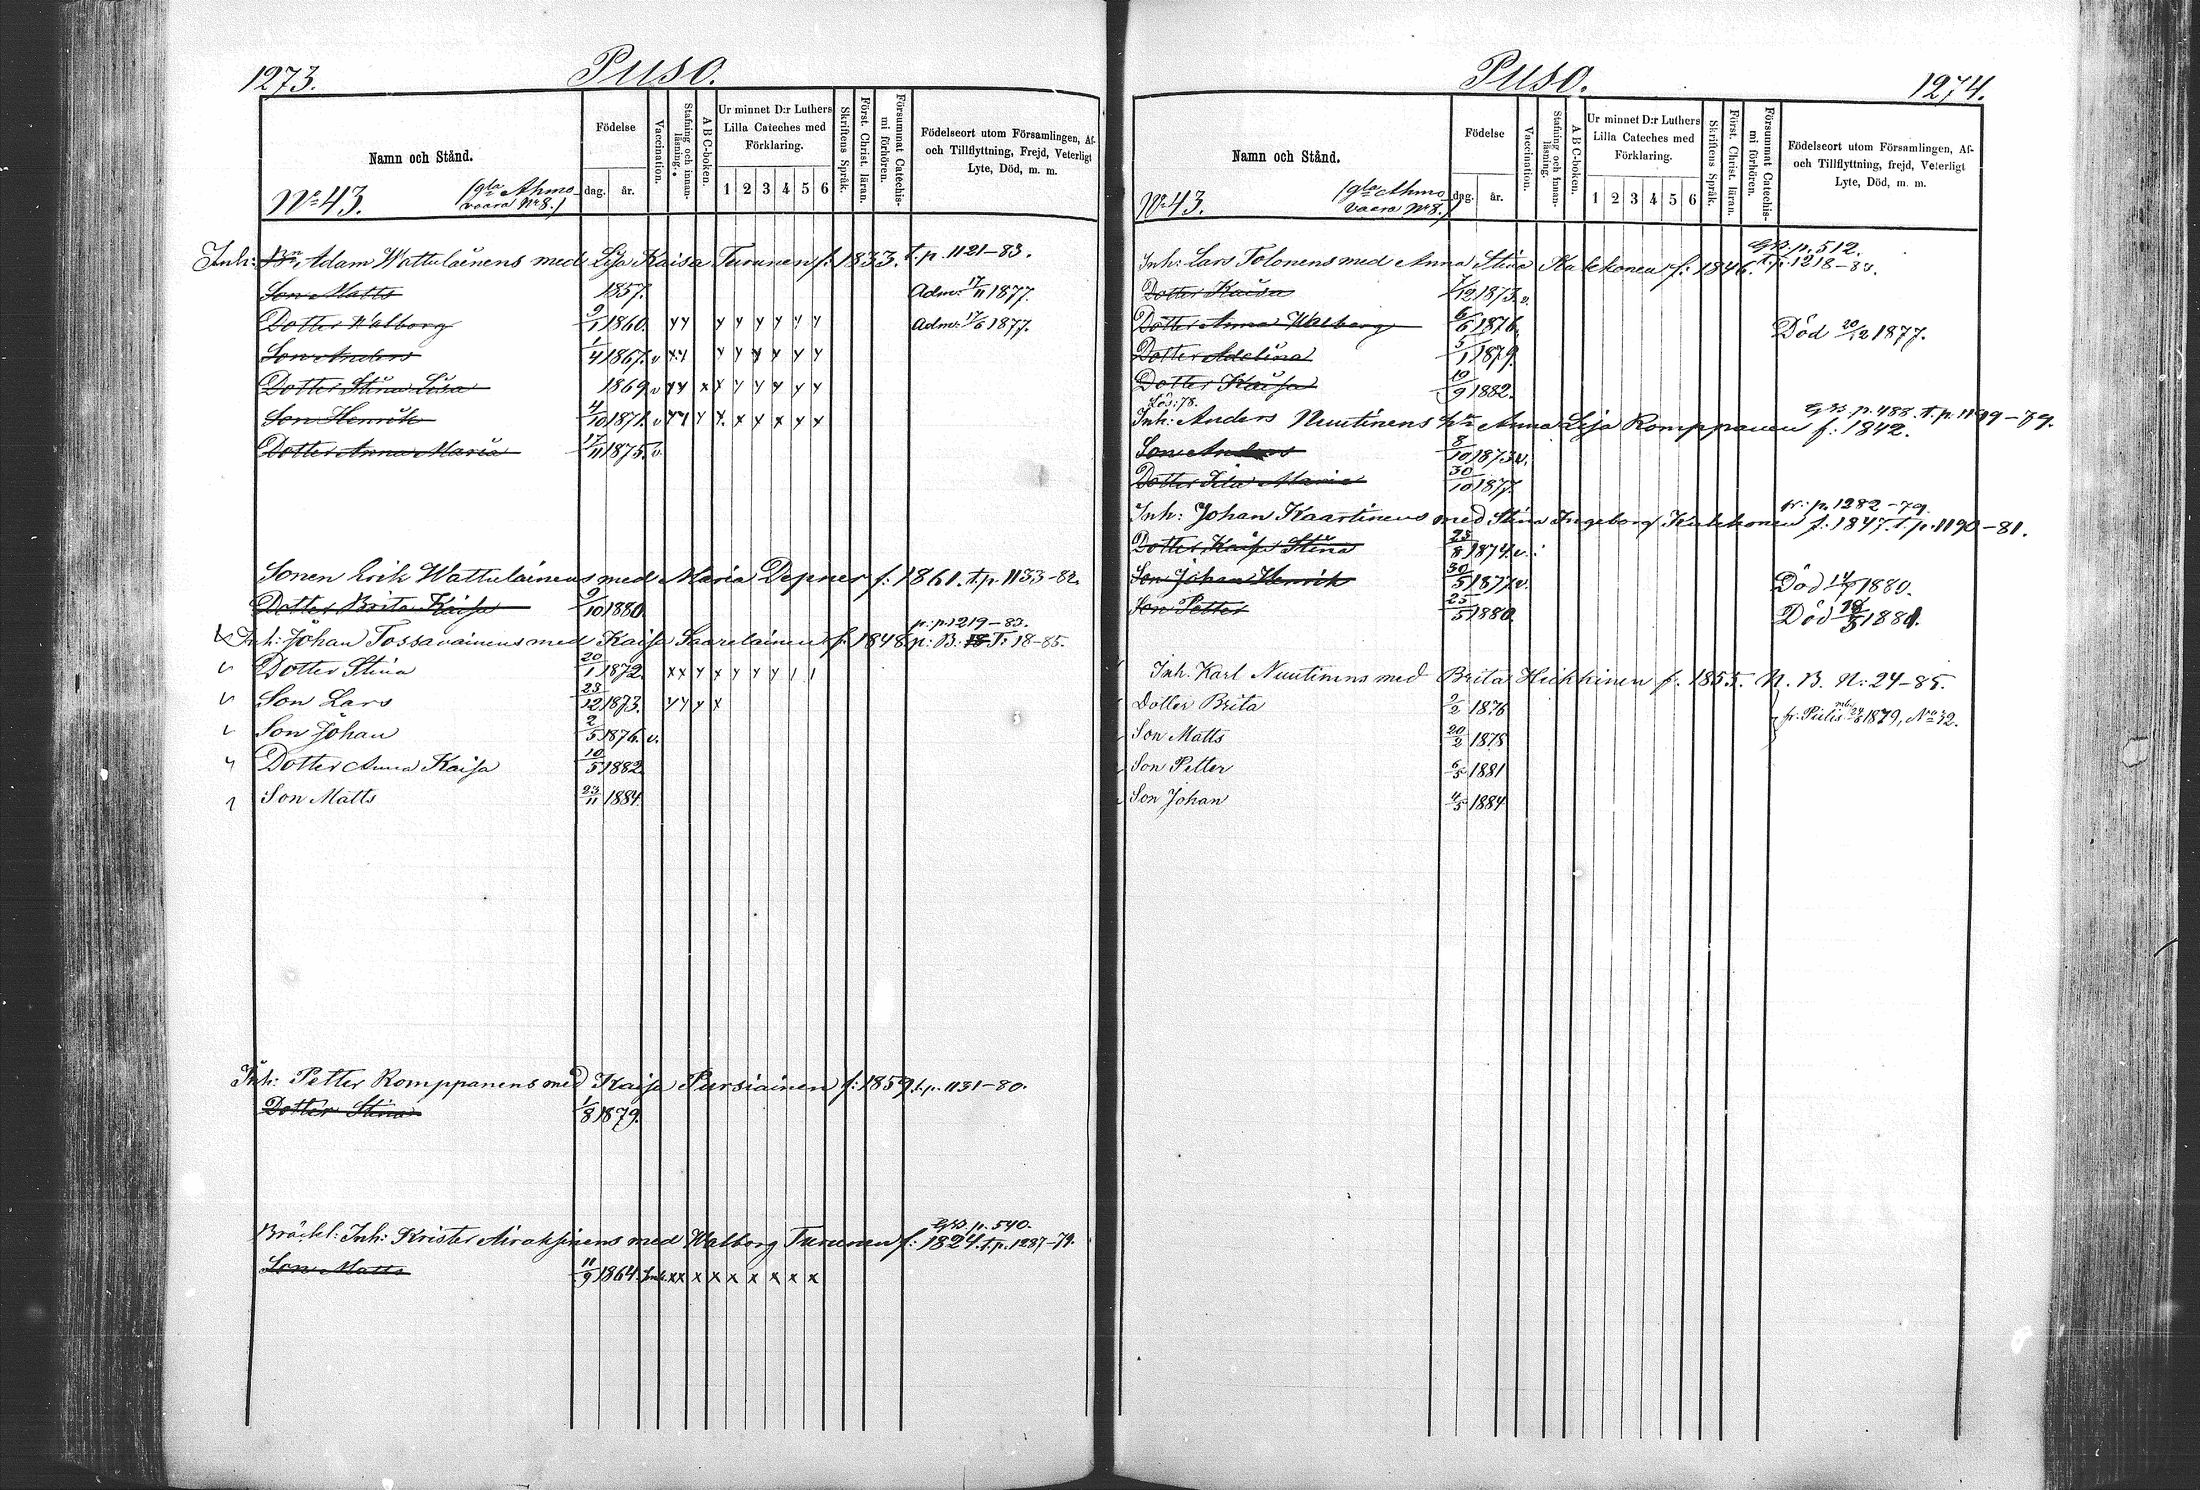 1273.
Puso.
Namn och Stånd.
Födelse
dag. år.
Vaccination.
Stafning och innan-läsning.
A B C-boken.
Ur minnet D:r Luthers
Lilla Cateches med
Förklaring.
1 2 3 4 5 6
Skriftens Språk.
Först. Christ. läran.
Försummat Catechis-mi förhören.
Födelseort utom Församlingen, Af-
och Tillflyttning, Frejd, Veterligt
Lyte, Död, m. m.
No 43. (gla Ahmo
vaara No 8.)
Inh: Bn Adam Wattulainens med Lisa Kaisa Turunen f: 1833. t.p. 1121-83.
Son Matts 1857. Adm: 17/11 1877.
Dotter Walborg 9/1 1860. yy y y y y y y Adm: 17/6 1877.
Son Anders 1/4 1867. v xy y y y y y y
Dotter Stina Lisa 1869 v yy x x y y y y y
Son Henrik 4/10 1871. v yy y x x y x y y
Dotter Anna Maria 17/11 1875. v.
Sonen Erik Wattulainens med Maria Depner f: 1861. t.p. 1133-82.
Dotter Brita Kaisa 9/10 1880.
fr: p. 1219-83.
Inh: Johan Tossavainens med Kaisa Saarelainen f: 1848. p: B. T: 18-85.
Dotter Stina 20/1 1872. xx y x y y y 1 1
Son Lars 23/12 1873. yy y x
Son Johan 2/5 1876. v.
Dotter Anna Kaisa 10/5 1882
Son Matts 23/11 1884.
Inh: Petter Romppanens med Kaisa Pursiainen f: 1859. t.p. 1131-80.
Dotter Stina 1/8 1879.
GB. p. 540.
Bräckl: Inh: Krister Airaksinens med Walborg Turunen f: 1824. t.p. 1287-79.
Son Matts 11/9 1864. xx x x x x x x x
Puso. 1274.
Namn och Stånd.
Födelse
dag. år.
Vaccination.
Stafning och innan-läsning.
A B C-boken.
Ur minnet D:r Luthers
Lilla Cateches med
Förklaring.
1 2 3 4 5 6
Skriftens Språk.
Först. Christ. läran.
Försummat Catechis-mi förhören.
Födelseort utom Församlingen, Af-
och Tillflyttning, frejd, Veterligt
Lyte, Död, m. m.
No 43. (gla Ahmo
vaara No 8.)
GB. p. 512.
Inh: Lars Tolonens med Anna Stina Kakkonen f: 1846. t.p. 1218-83.
Dotter Kaisa 7/12 1873. v.
Dotter Anna Walborg 6/6 1876. Död 20/12 1877.
Dotter Adelina 5/1 1879.
Dotter Kaisa 10/9 1882.
GB p. 488. t.p. 1199-79.
Inh: Anders Nuutinens Anna Lisa Romppanen f: 1842.
Son Anders 8/10 1873 v.
Dotter Ida Maria 30/10 1877.
fr: p. 1282-79.
Inh: Johan Kaartinens med Stina Ingeborg Kakkonen f: 1847. t.p. 1190-81.
Dotter Kaisa Stina 23/8 1874. v.
Son Johan Henrik 30/5 1877. v. Död 1880.
Son Petter 25/5 1880. Död 1881.
Inh. Karl Nuutinens med Brita Hiekkinen f. 1855. N. B. N: 24-85.
Dotter Brita 2/2 1876 fr. Pielis 1879, No 32.
Son Matts 20/2 1878
Son Petter 6/5 1881
Son Johan 4/5 1884